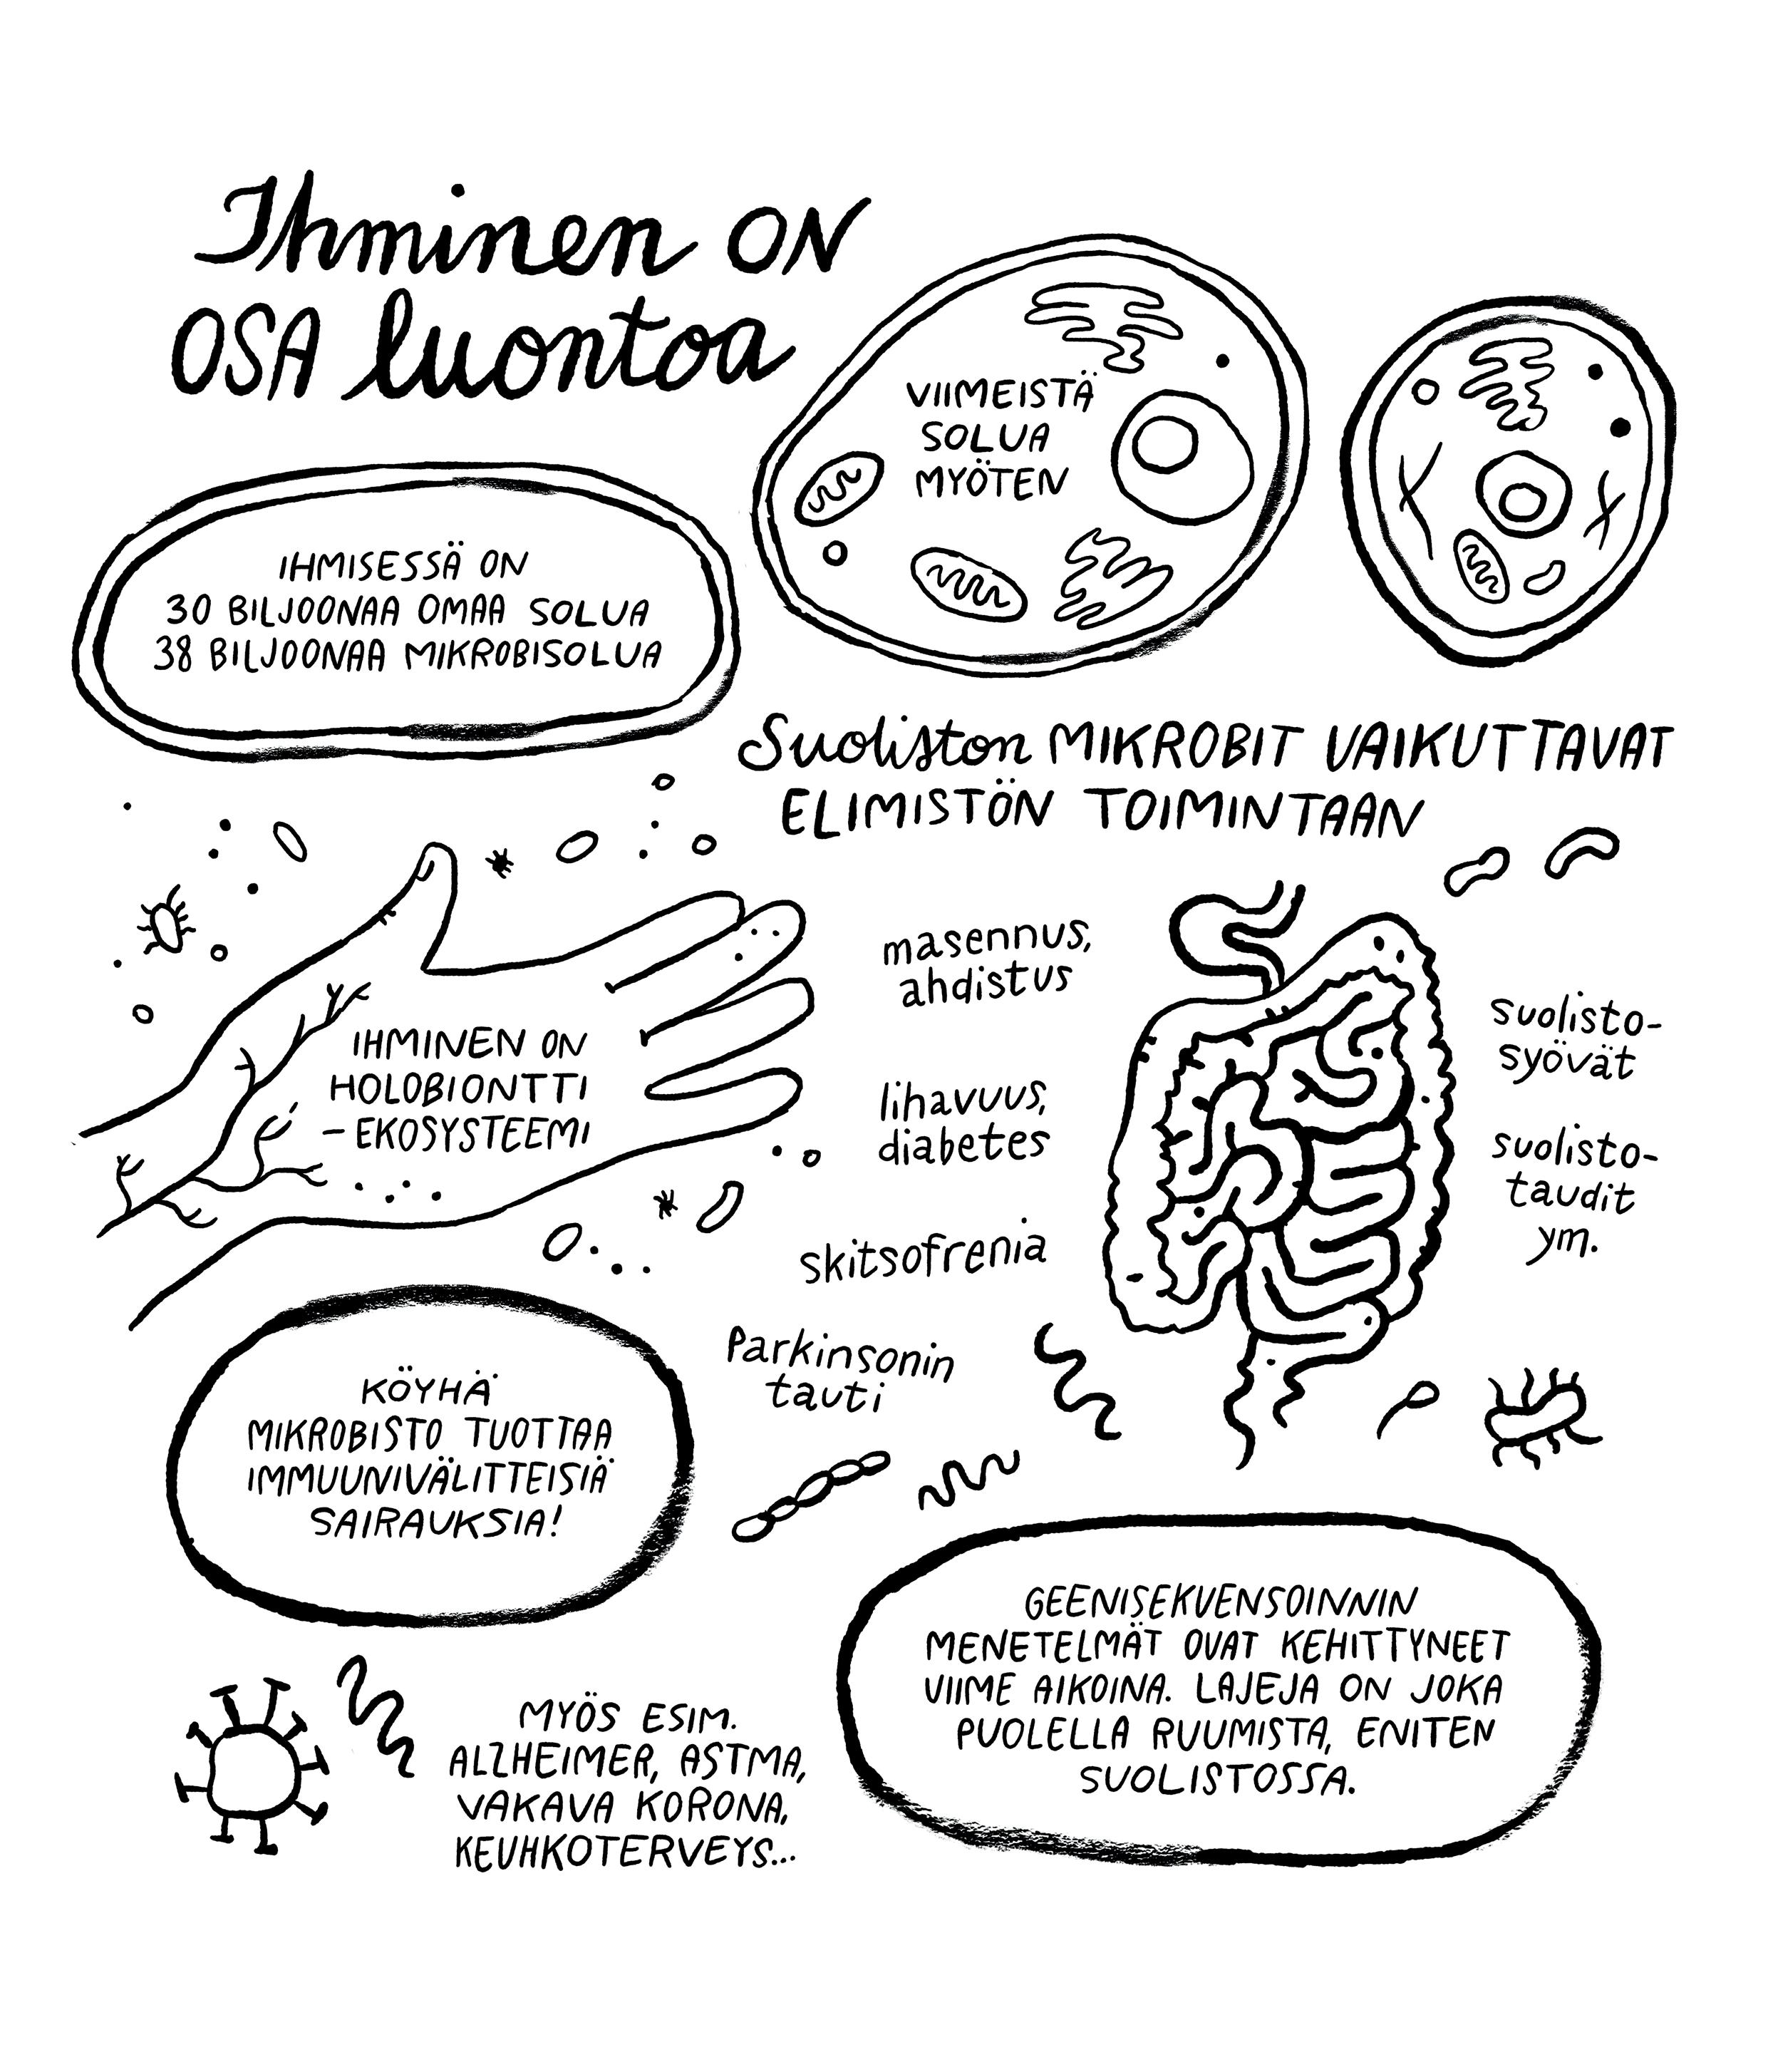 Ihminen ON
OSA luontoa
VIIMEISTÄ
SOLUA
MYÖTEN
IHMISESSÄ ON
30 BILJOONAA OMAA SOLUA
38 BILJOONAA MIKROBISOLUA
Suoliston MIKROBIT VAIKUTTAVAT
ELIMISTÖN TOIMINTAAN
IHMINEN ON
HOLOBIONTTI
- EKOSYSTEEMI
masennus,
ahdistus
lihavuus,
diabetes
skitsofrenia
Parkinsonin
tauti
suolisto-
syövät
suolisto-
taudit
ym.
KÖYHÄ
MIKROBISTO TUOTTAA
IMMUUNIVÄLITTEISIÄ
SAIRAUKSIA!
MYÖS ESIM.
ALZHEIMER, ASTMA,
VAKAVA KORONA,
KEUHKOTERVEYS...
GEENISEKVENSOINNIN
MENETELMÄT OVAT KEHITTYNEET
VIIME AIKOINA. LAJEJA ON JOKA
PUOLELLA RUUMISTA, ENITEN
SUOLISTOSSA.